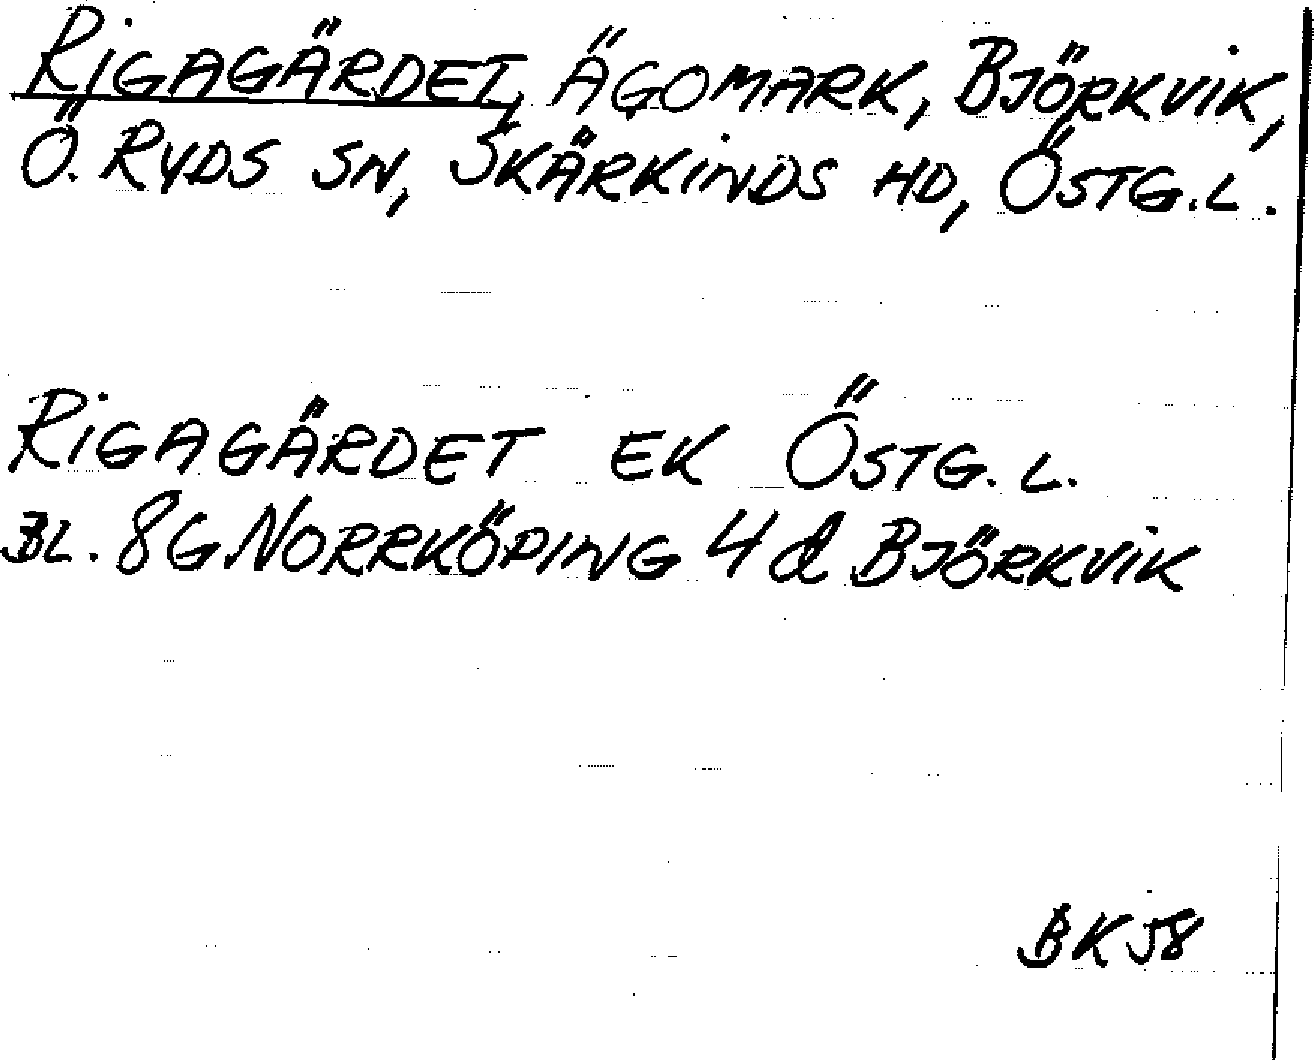 RIGAGÄRDET, ÄGOMARK, BJÖRKVIK,
Ö. RYDS SN, SKÄRKINDS HD, ÖSTG.L.
RIGAGÄRDET EK ÖSTG. L.
BL. 8G NORRKÖPING 4d BJÖRKVIK